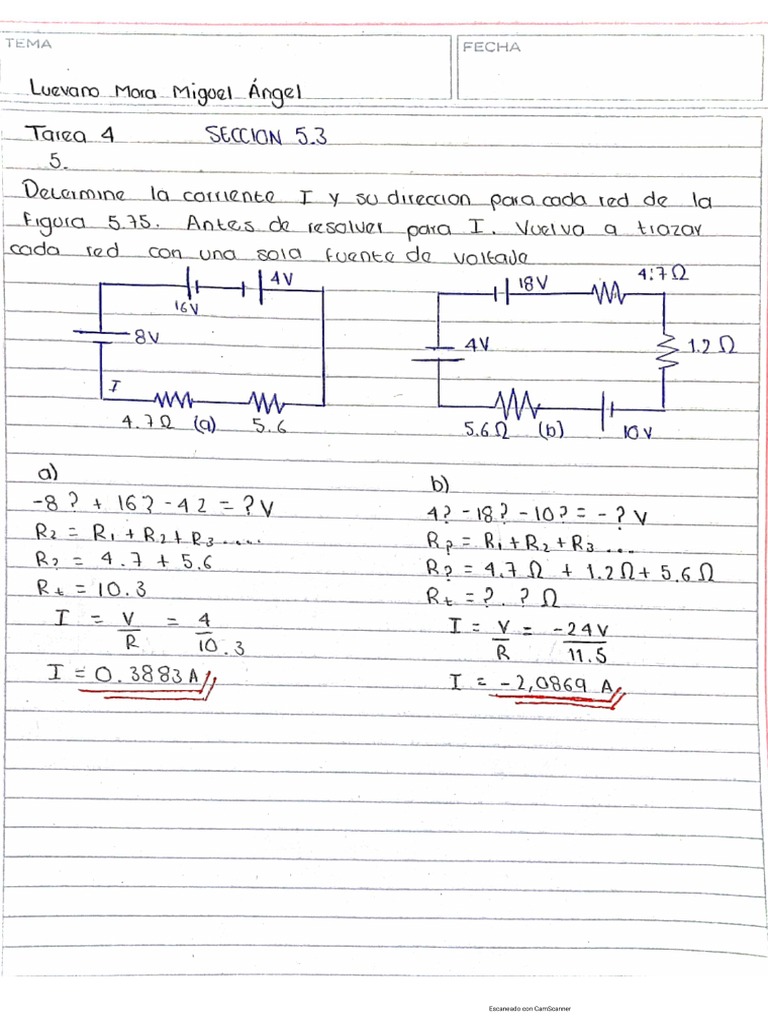 TEMA
FECHA
Luevano Mora Miguel Ángel
Tarea 4 SECCION 5.3
5.
Determine la corriente I y su direccion para cada red de la
figura 5.75. Antes de resolver para I. Vuelva a trazar
cada red con una sola fuente de voltaje
4V
16V
8V
I
4.7Ω (a) 5.6
18V
4.7Ω
4V
1.2 Ω
5.6Ω (b) 10V
a)
-8? + 16? - 4? = ? V
R? = R1 + R2 + R3 .....
R? = 4.7 + 5.6
Rt = 10.3
I = V/R = 4/10.3
I = 0.3883 A
b)
4? - 18? - 10? = - ? V
Rp = R1 + R2 + R3 ...
R? = 4.7 Ω + 1.2Ω + 5.6 Ω
Rt = ? . ? Ω
I = V/R = -24V/11.5
I = -2,0869 A
Escaneado con CamScanner